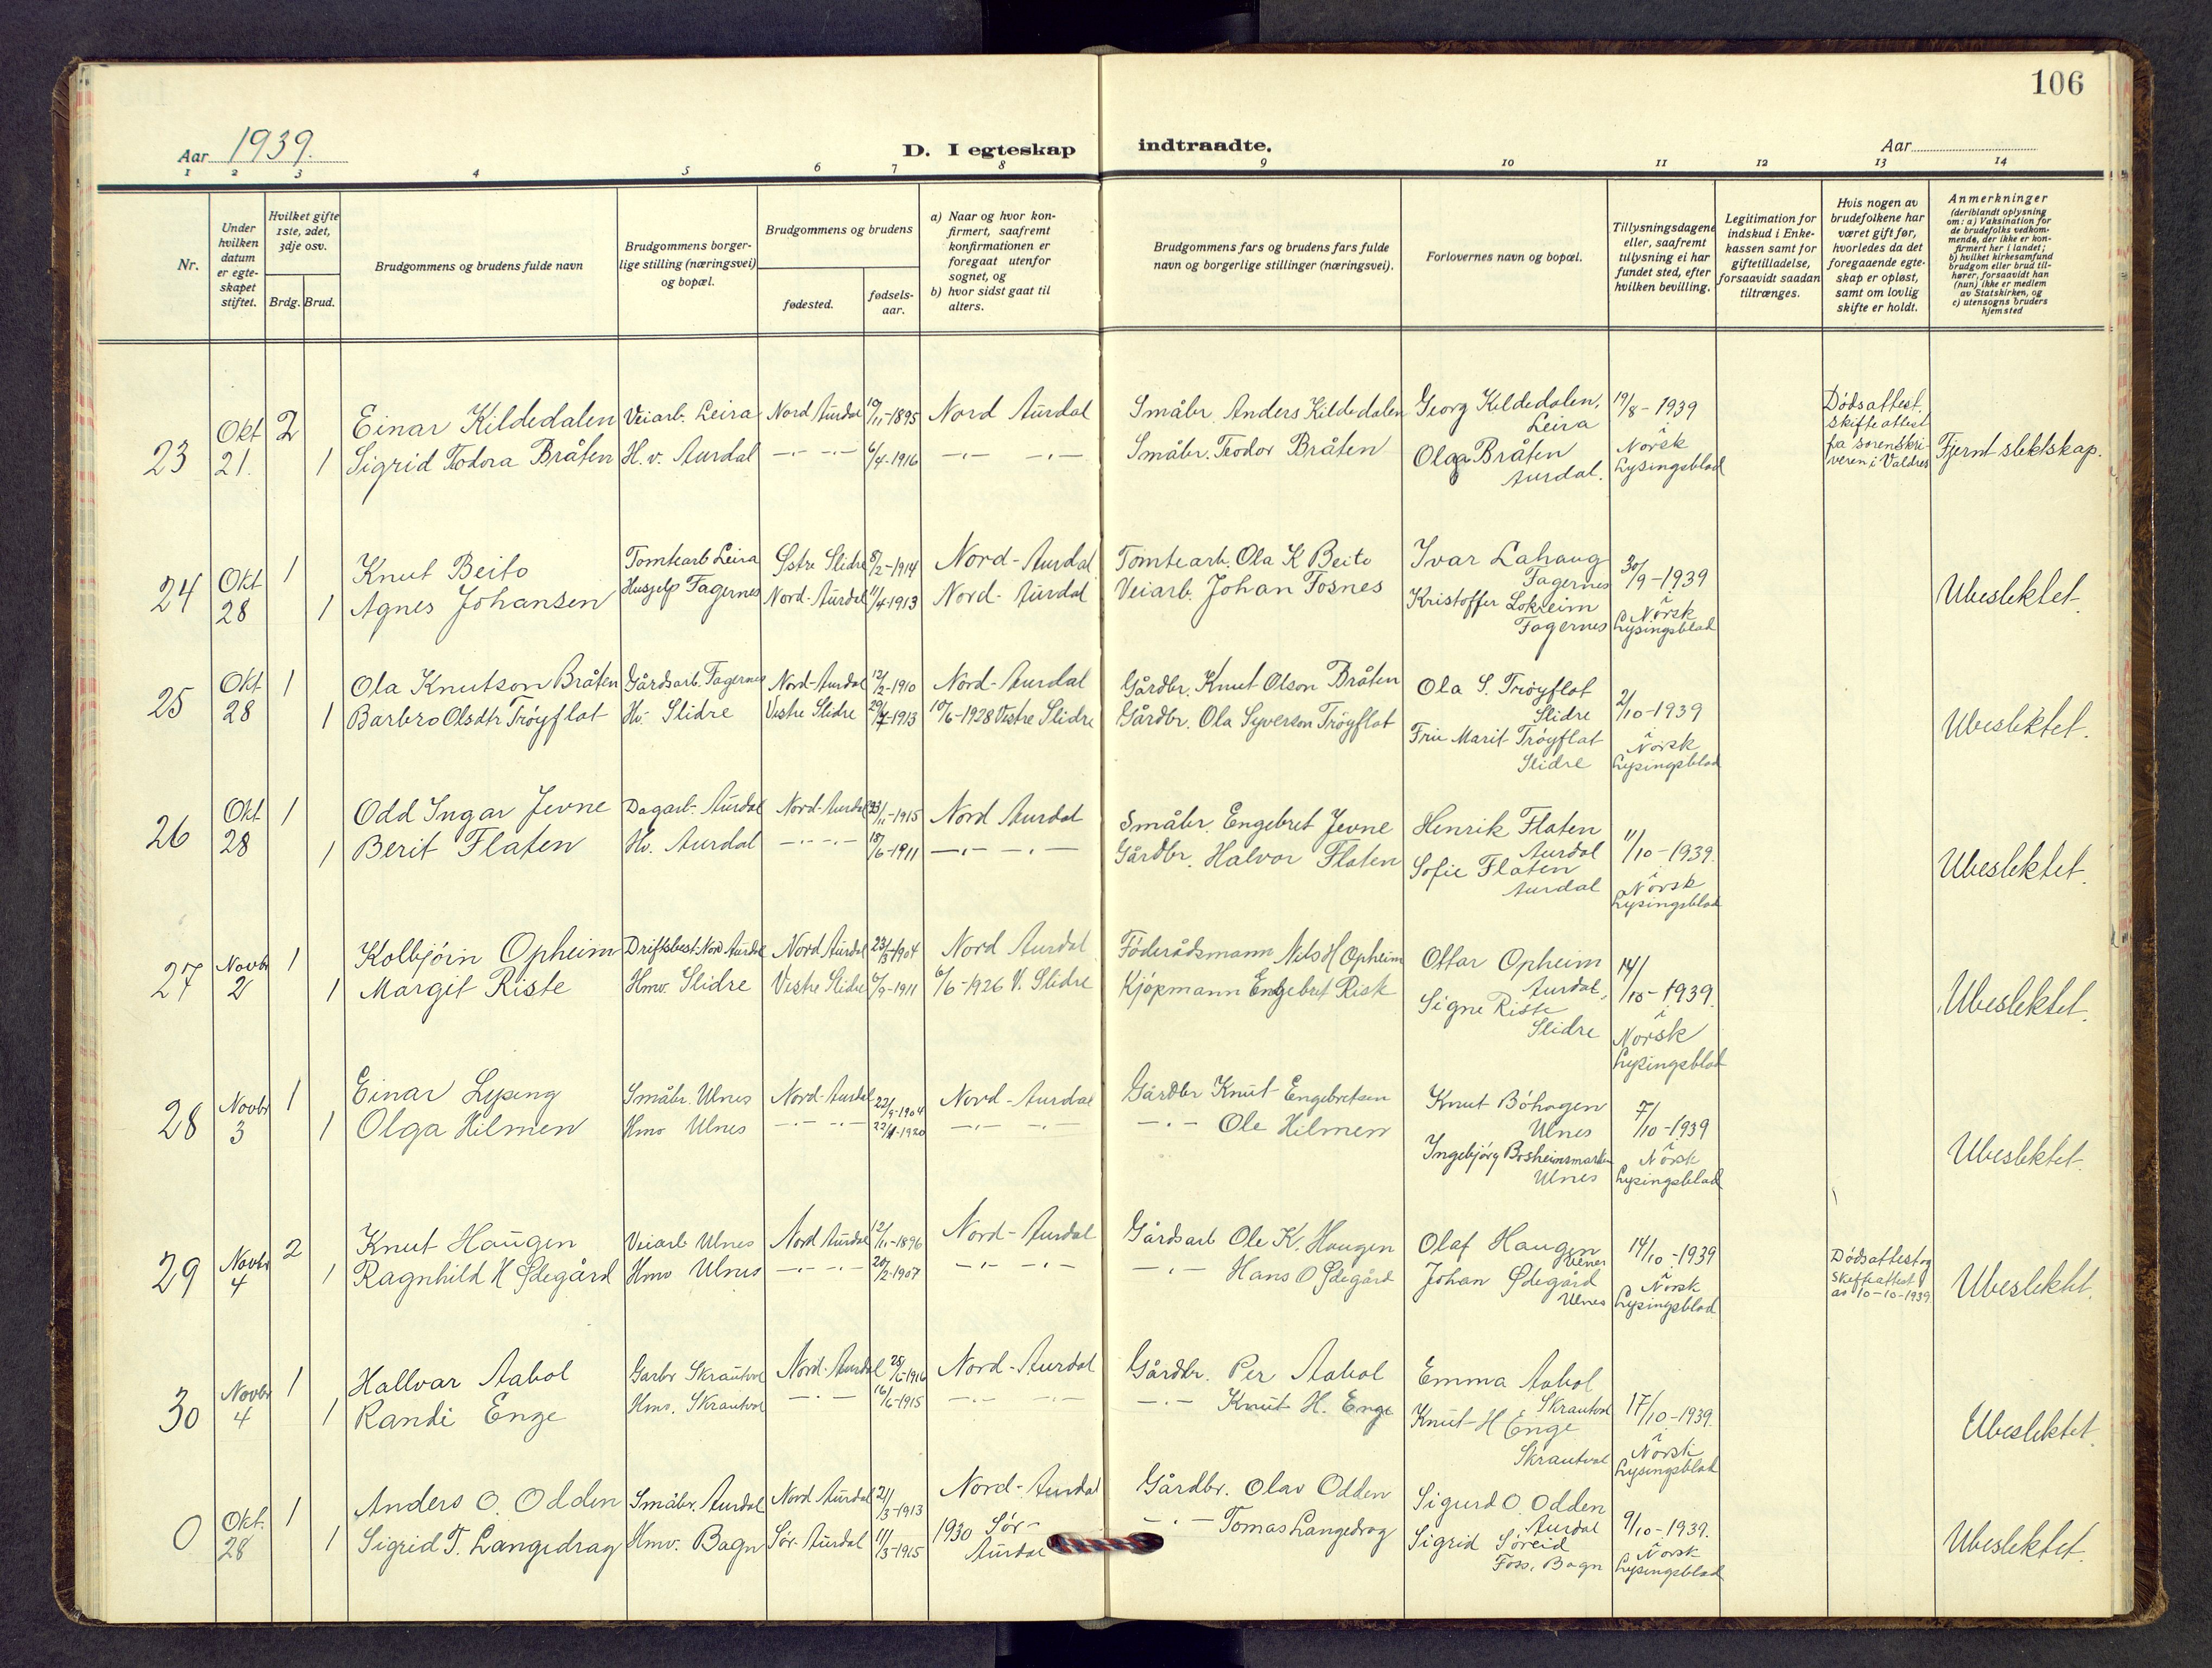 106
Aar 1939.
D. I egteskap indtraadte.
Aar
1 2 3 4 5 6 7 8 9 10 11 12 13 14
Nr.
Under hvilken datum er egteskapet stiftet.
Hvilket gifte 1ste, 2det, 3dje osv.
Brdg. Brud.
Brudgommens og brudens fulde navn
Brudgommens borgerlige stilling (næringsvei) og bopæl.
Brudgommens og brudens
fødested.
fødselsaar.
a) Naar og hvor konfirmert, saafremt konfirmationen er foregaat utenfor sognet, og
b) hvor sidst gaat til alters.
Brudgommens fars og brudens fars fulde navn og borgerlige stillinger (næringsvei).
Forlovernes navn og bopæl.
Tillysningsdagene eller, saafremt tillysning ei har fundet sted, efter hvilken bevilling.
Legitimation for indskud i Enkekassen samt for giftetilladelse, forsaavidt saadan tiltrænges.
Hvis nogen av brudefolkene har været gift før, hvorledes da det foregaaende egteskap er opløst, samt om lovlig skifte er holdt.
Anmerkninger
(deriblandt oplysning om: a) Vaksination for de brudefolks vedkommende, der ikke er konfirmert her i landet; b) hvilket kirkesamfund brudgom eller brud tilhører, forsaavidt han (hun) ikke er medlem av Statskirken, og c) utensogns bruders hjemsted
23 Okt 21. 2 Einar Kildedalen Veiarb. Leira Nord Aurdal 10/11-1895 Nord Aurdal Småbr. Anders Kildedalen Georg Kildedalen, Leira 19/8-1939
1 Sigrid Todora Bråten H.v. Aurdal —·— —·— 6/4-1916 —·— —·— Småbr. Teodor Bråten Olga Bråten Aurdal. i Norsk Lysingsblad
Dødsattest. Skifteattest fra sorenskriveren i Valdres
Fjernt slektskap.
24 Okt 28 1 Knut Beito Tomtearb Leira Østre Slidre 8/2-1914 Nord-Aurdal Tomtearb. Ola K Beito Ivar Lahaug Fagernes 30/9-1939
1 Agnes Johansen Husjelp Fagernes Nord-Aurdal 11/4-1913 Nord-Aurdal Veiarb. Johan Fosnes Kristoffer Lokreim Fagernes i Norsk Lysingsblad
Ubeslektet.
25 Okt 28 1 Ola Knutson Bråten Gårdsarb. Fagernes Nord-Aurdal 12/2-1910 Nord-Aurdal Gårdbr. Knut Olson Bråten Ola S. Trøyflat Slidre 2/10-1939
1 Barbro Olsdtr Trøyflat Hv. Slidre Vestre Slidre 29/7-1913 10/6-1928 Vestre Slidre Gårdbr. Ola Syverson Trøyflat Fru Marit Trøyflat Slidre i Norsk Lysingsblad
Ubeslektet.
26 Okt 28 1 Odd Ingar Jevne Dagarb. Aurdal Nord-Aurdal 23/11-1915 Nord Aurdal Småbr. Engebret Jevne Henrik Flaten Aurdal 11/10-1939.
1 Berit Flaten Hv. Aurdal —·— —·— 18/6-1911 —·— —·— Gårdbr. Halvor Flaten Sofie Flaten Aurdal i Norsk Lysingsblad
Ubeslektet.
27 Novbr 2 1 Kolbjørn Opheim Driftsbest. Nord Aurdal Nord Aurdal 23/3-1904 Nord Aurdal Føderådsmann Nils H Opheim Ottar Opheim Aurdal, 14/10-1939.
1 Margit Riste Hmv. Slidre Vestre Slidre 6/9-1911 6/6-1926 V. Slidre Kjøpmann Engebret Riste Signe Riste Slidre i Norsk Lysingsblad
Ubeslektet.
28 Novbr 3 1 Einar Lysing Småbr. Ulnes Nord-Aurdal 22/9-1904 Nord-Aurdal Gårdbr Knut Engebretsen Knut Bøhagen Ulnes 7/10-1939
1 Olga Hilmen Hmv Ulnes —·— —·— 22/4-1920 —·— —·— —·— Ole Hilmen Ingebjørg Bosheimsmarken Ulnes i Norsk Lysingsblad
Ubeslektet.
29 Novbr 4 2 Knut Haugen Veiarb Ulnes Nord Aurdal 12/11-1896 Nord-Aurdal Gårdsarb Ole K. Haugen Olaf Haugen Ulnes 14/10-1939
1 Ragnhild H Ødegård Hmv Ulnes —·— —·— 20/2-1907 —·— —·— —·— Hans O Ødegård Johan Ødegård Ulnes i Norsk Lysingsblad
Dødsattest og Skifteattest av 10-10-1939
Ubeslektet.
30 Novbr 4 1 Hallvar Aabol Garbr Skrautvol Nord-Aurdal 28/6-1916 Nord-Aurdal Gårdbr. Per Aabol Emma Aabol Skrautvol 17/10-1939.
1 Randi Enge Hmv. Skrautvol —·— 16/6-1915 —·— —·— —·— Knut H. Enge Knut H Enge Skrautval i Norsk Lysingsblad
Ubeslektet.
0 Okt. 28 1 Anders O. Odden Småbr. Aurdal Nord Aurdal 21/3-1913 Nord-Aurdal Gårdbr. Olav Odden Sigurd O. Odden Aurdal 9/10-1939.
1 Sigrid T. Langedrag Hmv. Bagn Sør-Aurdal 11/3-1915 1930 Sør-Aurdal —·— Tomas Langedrag Sigrid Søreid Foss, Bagn i Norsk Lysingsblad
Ubeslektet.